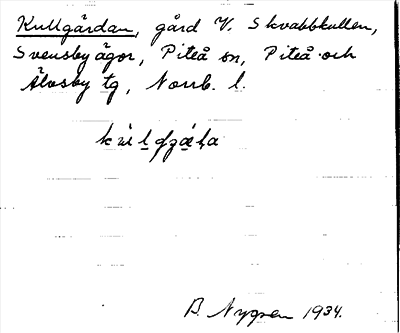 Kullgårdan, gård V. Skvabbkullen,
Svensby ägor, Piteå sn, Piteå och
Älvsby tg, Norrb. l.
B. Nygren 1934.